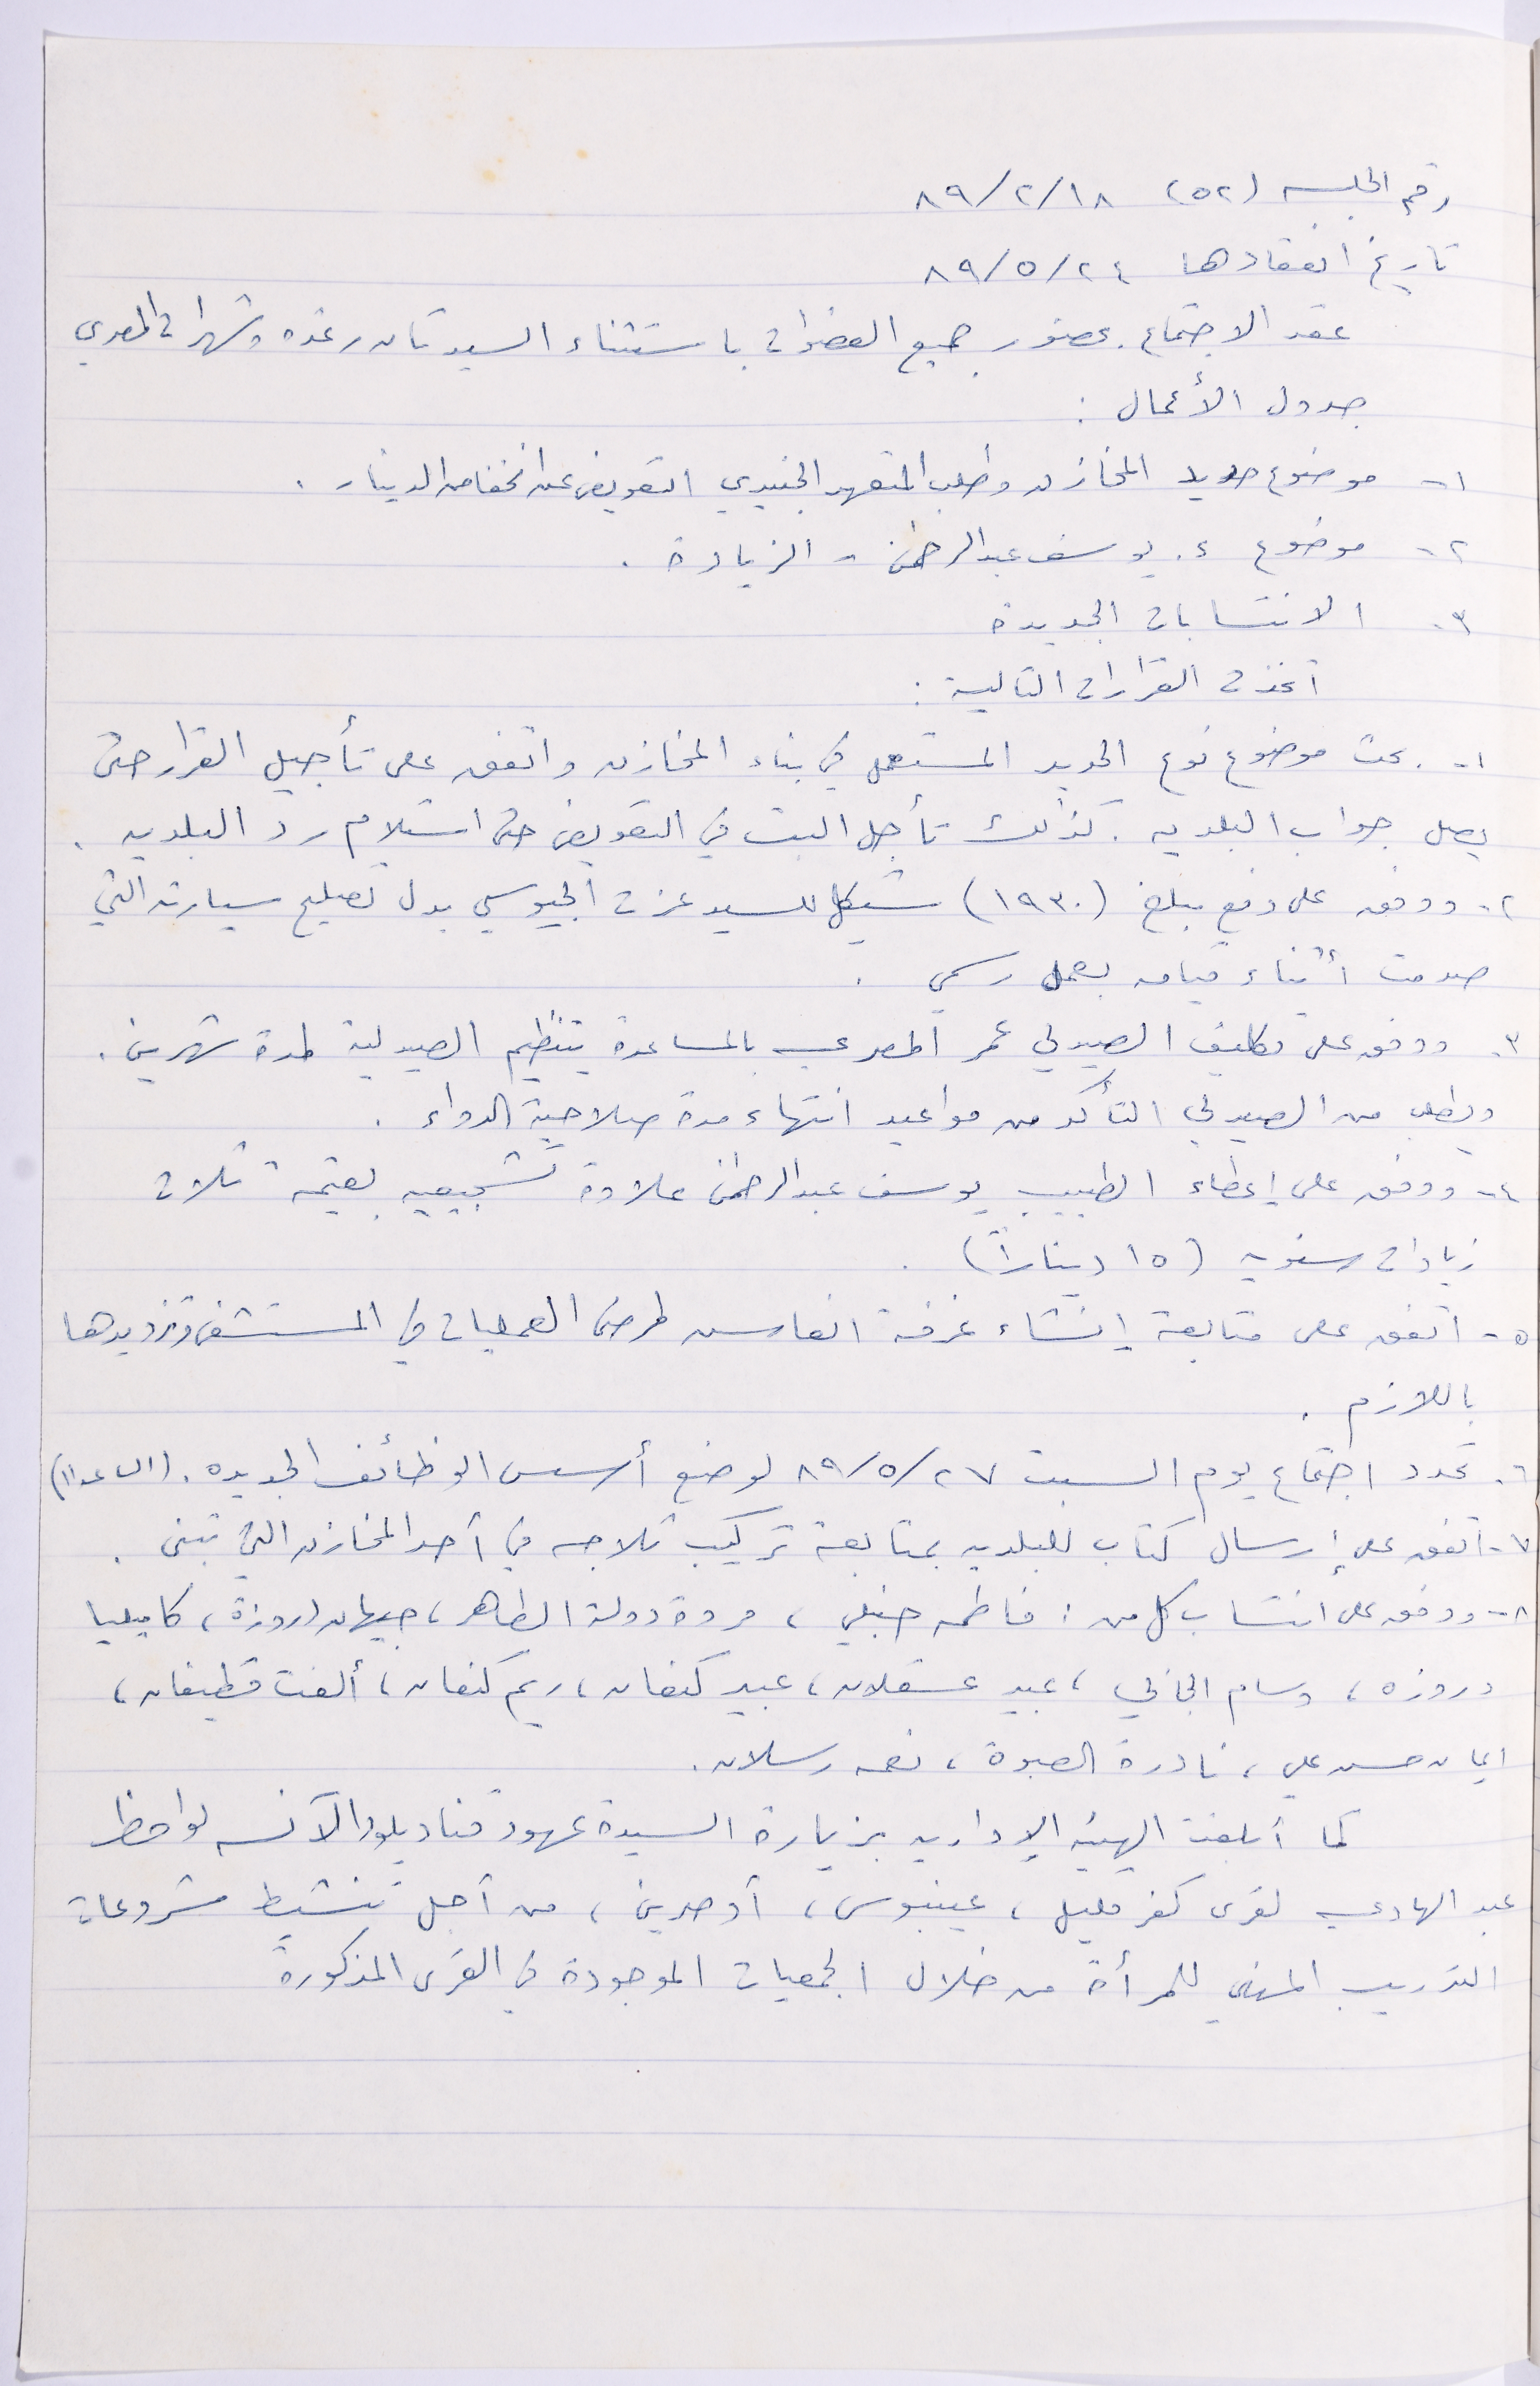 رقم الجلسه (٥٢) ٨٩/٢/١٨
تاريخ انعقادها ٨٩/٥/٢٤
عقد الاجتماع بحضور جميع العضوات باستثناء السيدتان رغده وشهرات المصري
جدول الأعمال :
١- موضوع حديد المخازن وطلب المتعهد الجنيدي التعويض عن انخفاض الدينار .
٢- موضوع د. يوسف عبدالرحمن - الزيادة .
٣- الانتسابات الجديدة
اتخذت القرارات التالية :
١- بحث موضوع نوع الحديد المستعمل في بناء المخازن واتفق على تأجيل القرار حتى
يصل جواب البلديه . كذلك تأجل البت في التعويض حتى استلام رد البلديه .
٢- ووفق على دفع مبلغ (١٩٣٠) شيكل للسيد عزت الجيوسي بدل تصليح سيارته التي
صدمت أثناء قيامه بعمل رسمي .
٣- ووفق على تكليف الصيدلي عمر المصري بالمساعدة بتنظيم الصيدلية لمدة شهرين .
ويطلب من الصيدلي التأكد من مواعيد انتهاء مدة صلاحية الدواء .
٤- ووفق على إعطاء الطبيب يوسف عبدالرحمن علاوة تشجيعيه بقيمة ثلاث
زيادات سنويه (١٥ ديناراً) .
٥- اتفق على متابعة إنشاء غرفة انعاش لمرضى العمليات في المستشفى وتزويدها
باللازم .
٦- تحدد اجتماع يوم السبت ٨٩/٥/٢٧ لوضع أسس الوظائف الجديده . (الساعه ١١)
٧- اتفق على إرسال كتاب للبلديه بمتابعة تركيب ثلاجه في أحد المخازن التي تبنى .
٨- ووفق على انتساب كل من : فاطمه حنبلي ، مروة دولة الطاهر ، جيهان دروزة ، كاميليا
دروزه ، وسام الخالي ، عبير عسقلان ، عبير كنعان ، ريم كنعان ، ألفت قطيفان ،
ايمان حسن علي ، نادرة الصبوة ، نعمه رسلان .
كما أبلغت الهيئه الإداريه بزيارة السيدة عهود قناديلو والآنسه لواحظ
عبد الهادي لقرى كفر قليل ، عينبوس ، أودلا ، من أجل تنشيط مشروعات
التدريب المهني للمرأة من خلال الجمعيات الموجودة في القرى المذكورة